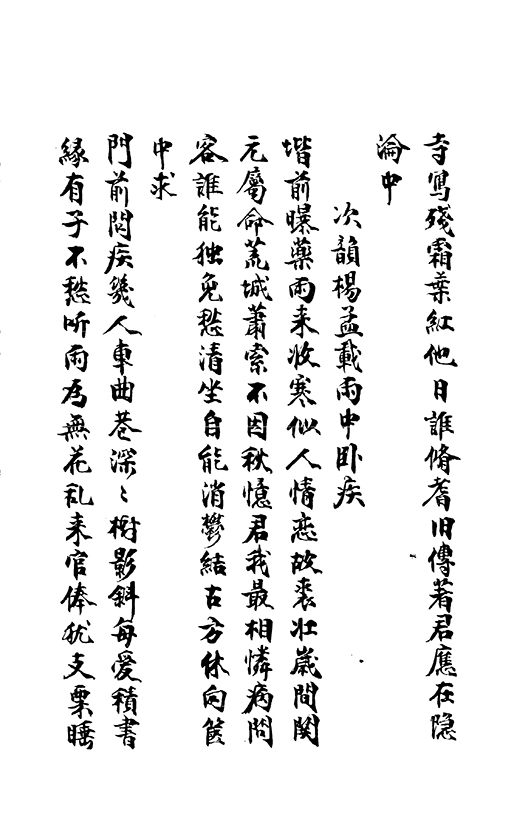 寺寫殘霜葉紅他日誰脩耆旧傳著君應在隐
淪中
次韻楊孟載雨中卧疾
堦前曝藥雨来收寒似人情恋故裘壮嵗間関
元屬命荒城蕭索不因秋憶君我最相憐病問
客誰能独免愁清坐自能消鬱結古方休向箧
中求
門前問疾幾人車曲巷深〻樹影斜每愛積書
緣有子不愁听雨為無花乱来官俸犹支粟睡